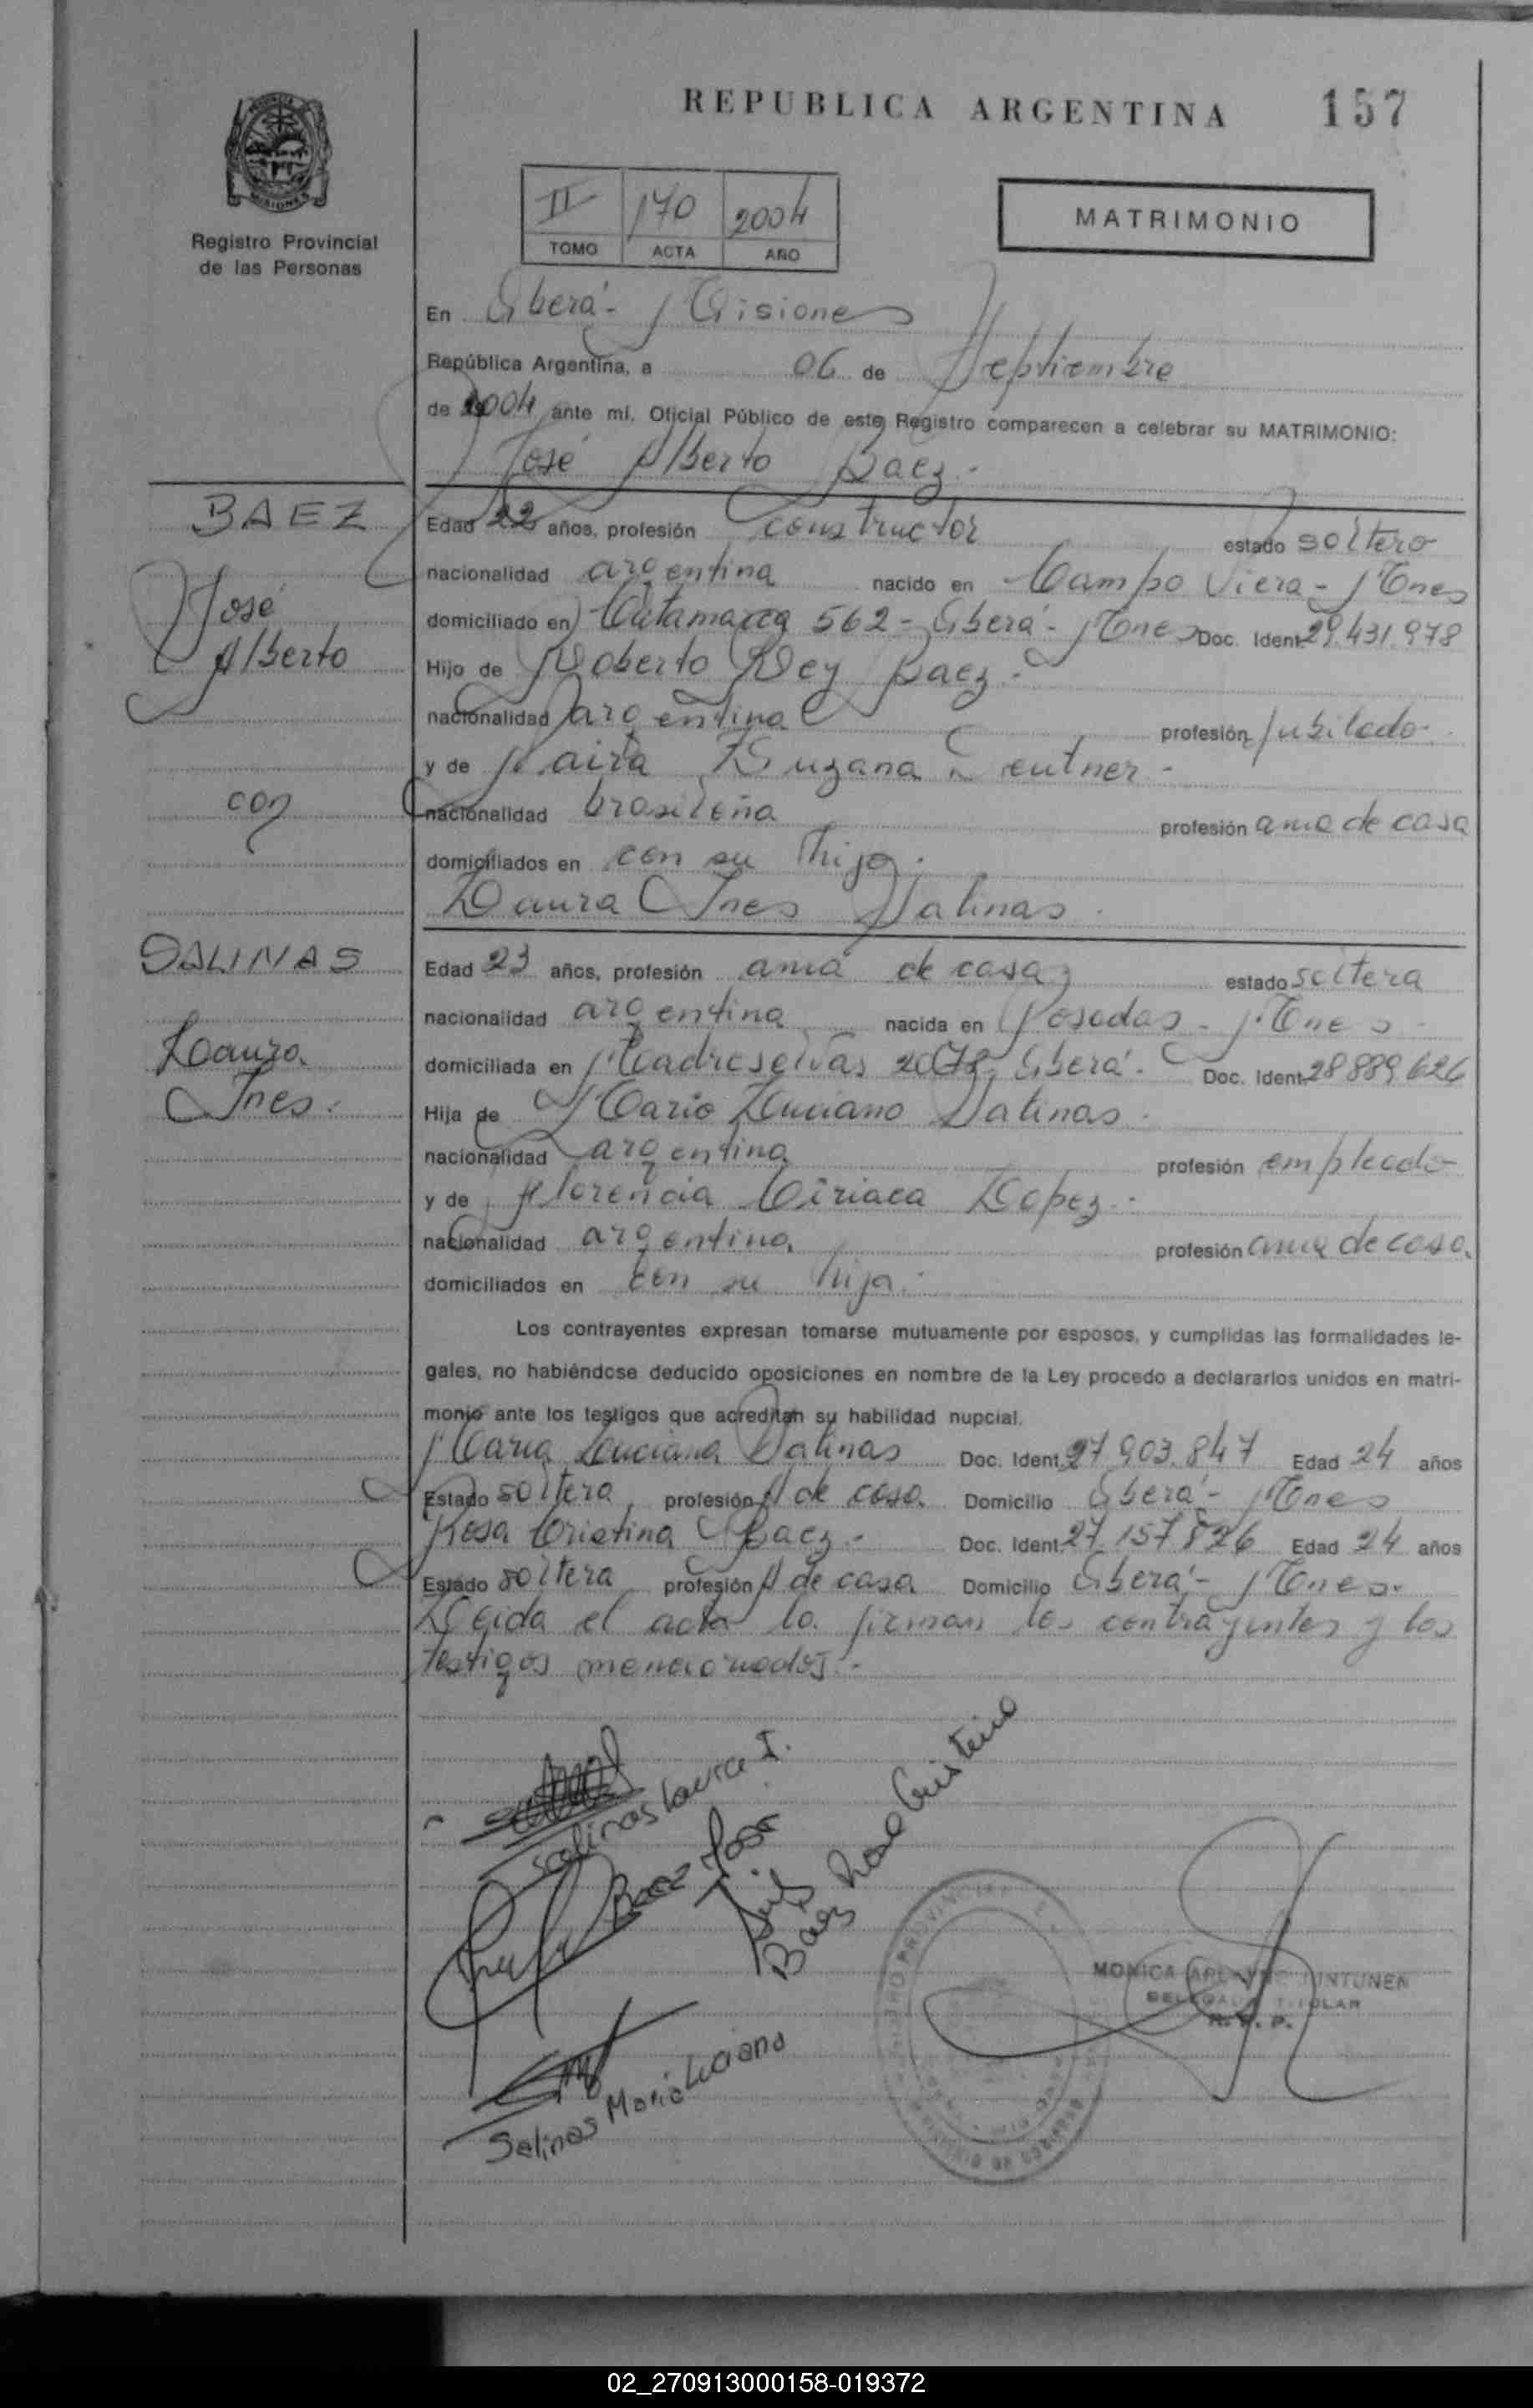 REPUBLICA ARGENTINA 157
MISIONES
Registro Provincial
de las Personas
II 170 2004
TOMO ACTA AÑO
MATRIMONIO
En Oberá - Misiones
República Argentina, a 06 de Septiembre
de 2004 ante mí, Oficial Público de este Registro comparecen a celebrar su MATRIMONIO:
José Alberto Baez.
BAEZ
José
Alberto
con
SALINAS
Laura
Ines.
Edad 22 años, profesión constructor estado soltero
nacionalidad argentina nacido en Campo Viera - Mnes
domiciliado en Catamarca 562 - Oberá - Mnes Doc. Ident. 29.431.978
Hijo de Roberto Rey Baez.
nacionalidad argentina profesión Jubilado.
y de Naira Suzana Leutner -
nacionalidad brasileña profesión ama de casa
domiciliados en con su hijo.
Laura Ines Salinas.
Edad 23 años, profesión ama de casa estado soltera
nacionalidad argentina nacida en Posadas - Mnes -
domiciliada en Madreselvas Oberá - Doc. Ident. 28889626
Hija de Mario Luciano Salinas.
nacionalidad argentina profesión empleado
y de Florencia Ciriaca Lopez.
nacionalidad argentina profesión ama de casa.
domiciliados en con su hija.
Los contrayentes expresan tomarse mutuamente por esposos, y cumplidas las formalidades le-
gales, no habiéndose deducido oposiciones en nombre de la Ley procedo a declararlos unidos en matri-
monio ante los testigos que acreditan su habilidad nupcial.
Maria Luciana Salinas Doc. Ident. 27.903.847 Edad 24 años
Estado soltera profesión A de casa Domicilio Oberá - Mnes
Rosa Cristina Baez. Doc. Ident. 27.157.826 Edad 24 años
Estado soltera profesión A de casa Domicilio Oberá - Mnes.
Leida el acta la firman los contrayentes y los
testigos mencionados.-
Salinas Laura I.
Baez Jose
Baez Rosa Cristina
Salinas Maria Luciana
MONICA JUNTUNEN
DELEGADA TITULAR
R. P. P.
02_270913000158-019372